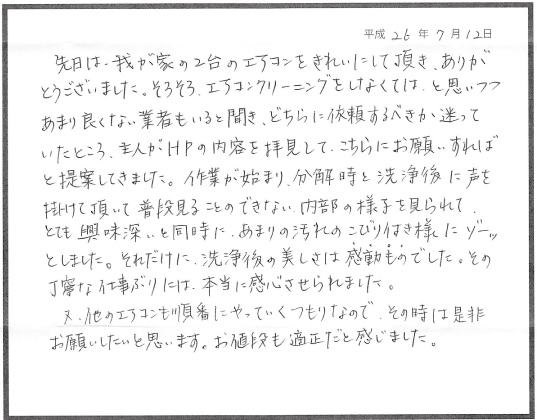 平成 26 年 7 月 12日
先日は、我が家の2台のエアコンをきれいにして頂き、ありが
とうございました。そろそろ、エアコンクリーニングをしなくては、と思いつつ
あまり良くない業者もいると聞き、どちらに依頼するべきか迷って
いたところ、主人がHPの内容を拝見して、こちらにお願いすれば
と提案してきました。作業が始まり、分解時と洗浄後に声を
掛けて頂いて普段見ることのできない、内部の様子を見られて、
とても興味深いと同時に、あまりの汚れのこびり付き様にゾーッ
としました。それだけに、洗浄後の美しさは感動ものでした。その
丁寧な仕事ぶりには、本当に感心させられました。
又、他のエアコンも順番にやっていくつもりなので、その時は是非
お願いしたいと思います。お値段も適正だと感じました。